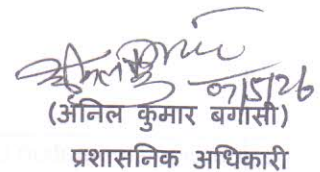 07/5/26
(अनिल कुमार बगासी)
प्रशासनिक अधिकारी